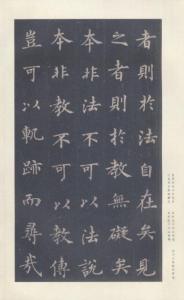 者則於法自在矣見
之者則於教無礙矣
本非法不可以法說
本非教不可以教傳
豈可以軌跡而尋哉